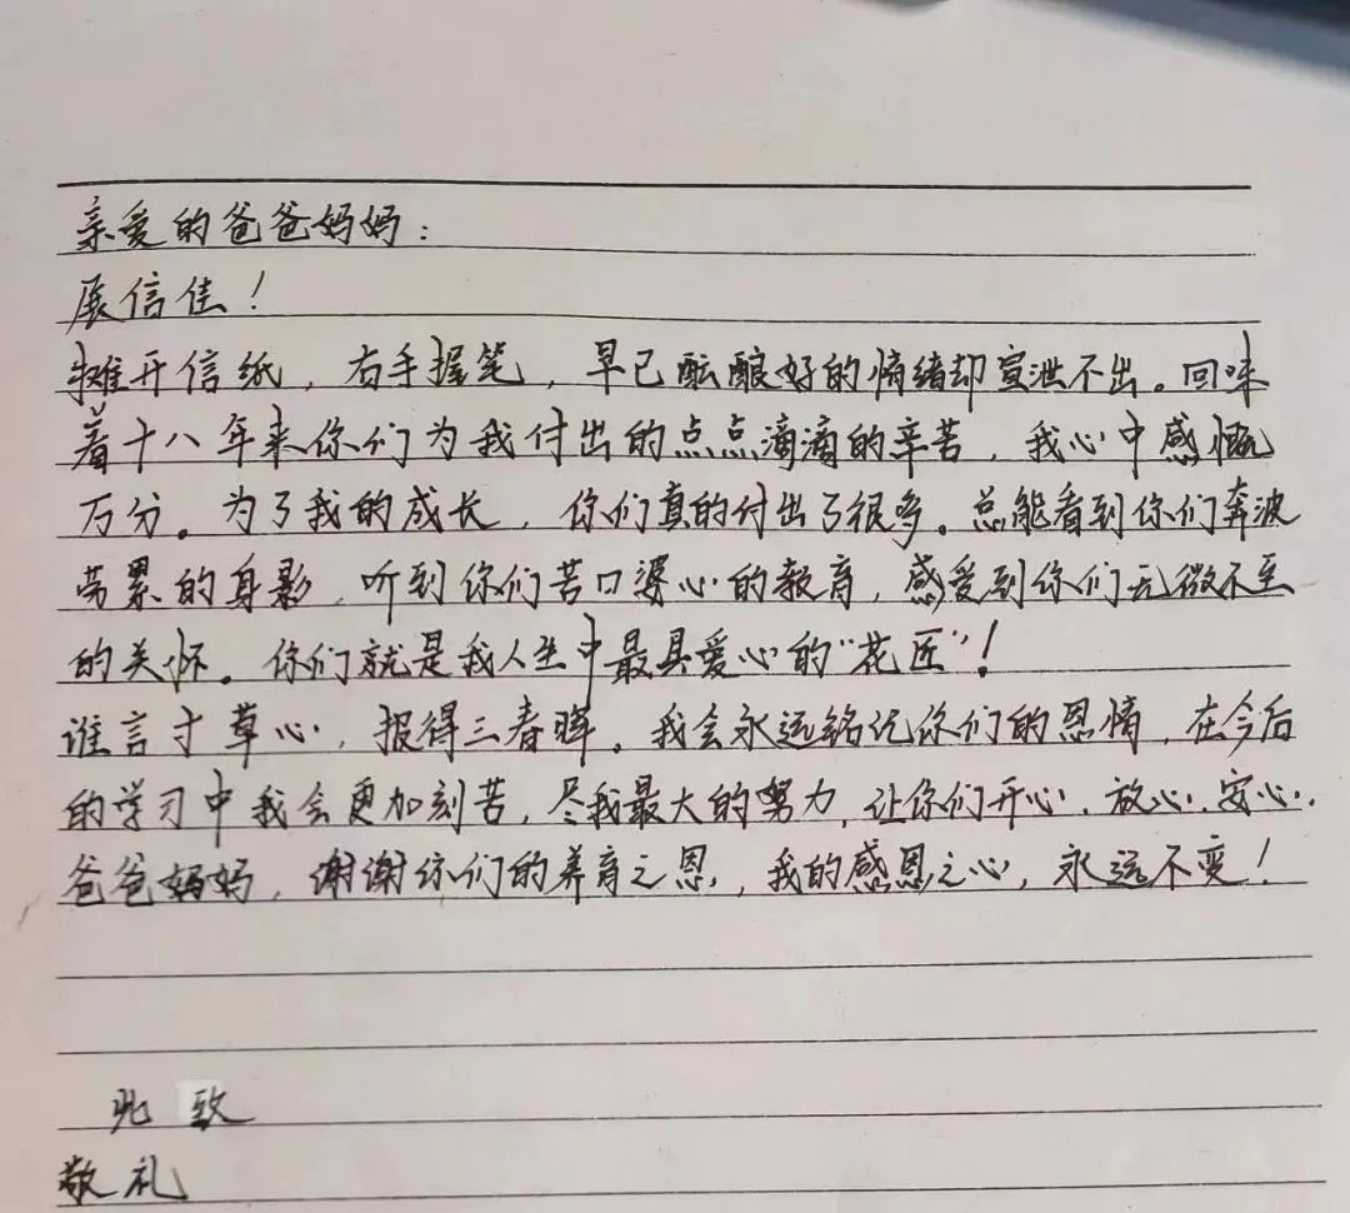 亲爱的爸爸妈妈：
展信佳！
摊开信纸，右手握笔，早已酝酿好的情绪却宣泄不出。回味
着十八年来你们为我付出的点点滴滴的辛苦，我心中感慨
万分。为了我的成长，你们真的付出了很多。总能看到你们奔波
劳累的身影，听到你们苦口婆心的教育，感受到你们无微不至
的关怀。你们就是我人生中最具爱心的“花匠”！
谁言寸草心，报得三春晖。我会永远铭记你们的恩情，在今后
的学习中我会更加刻苦，尽我最大的努力，让你们开心、放心、安心。
爸爸妈妈，谢谢你们的养育之恩，我的感恩之心，永远不变！
此致
敬礼